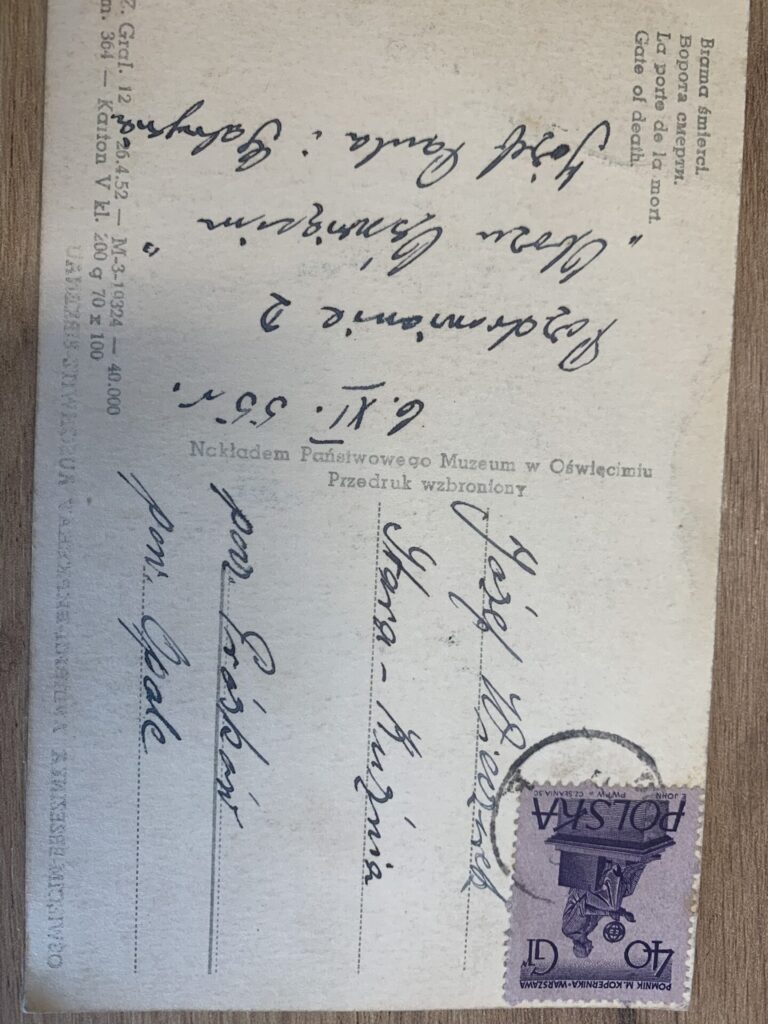 Brama śmierci.
Ворота смерти.
La porte de la mort.
Gate of death.
6. XI. 55 r.
Pozdrowienie z
„Obozu Oświęcim"
Józef Paula i
Nakładem Państwowego Muzeum w Oświęcimiu
Przedruk wzbroniony
Józef
Stara-Kuźnia
Prószków
pow. Opole
Z. Graf. 12 26.4.52 — M-3-19324 — 40.000
m. 364 — Karton V kl. 200 g 70 x 100
POLSKA
E. JOHN PWPW • CZ. SŁANIA SC.
40 GR
POMNIK M. KOPERNIKA • WARSZAWA